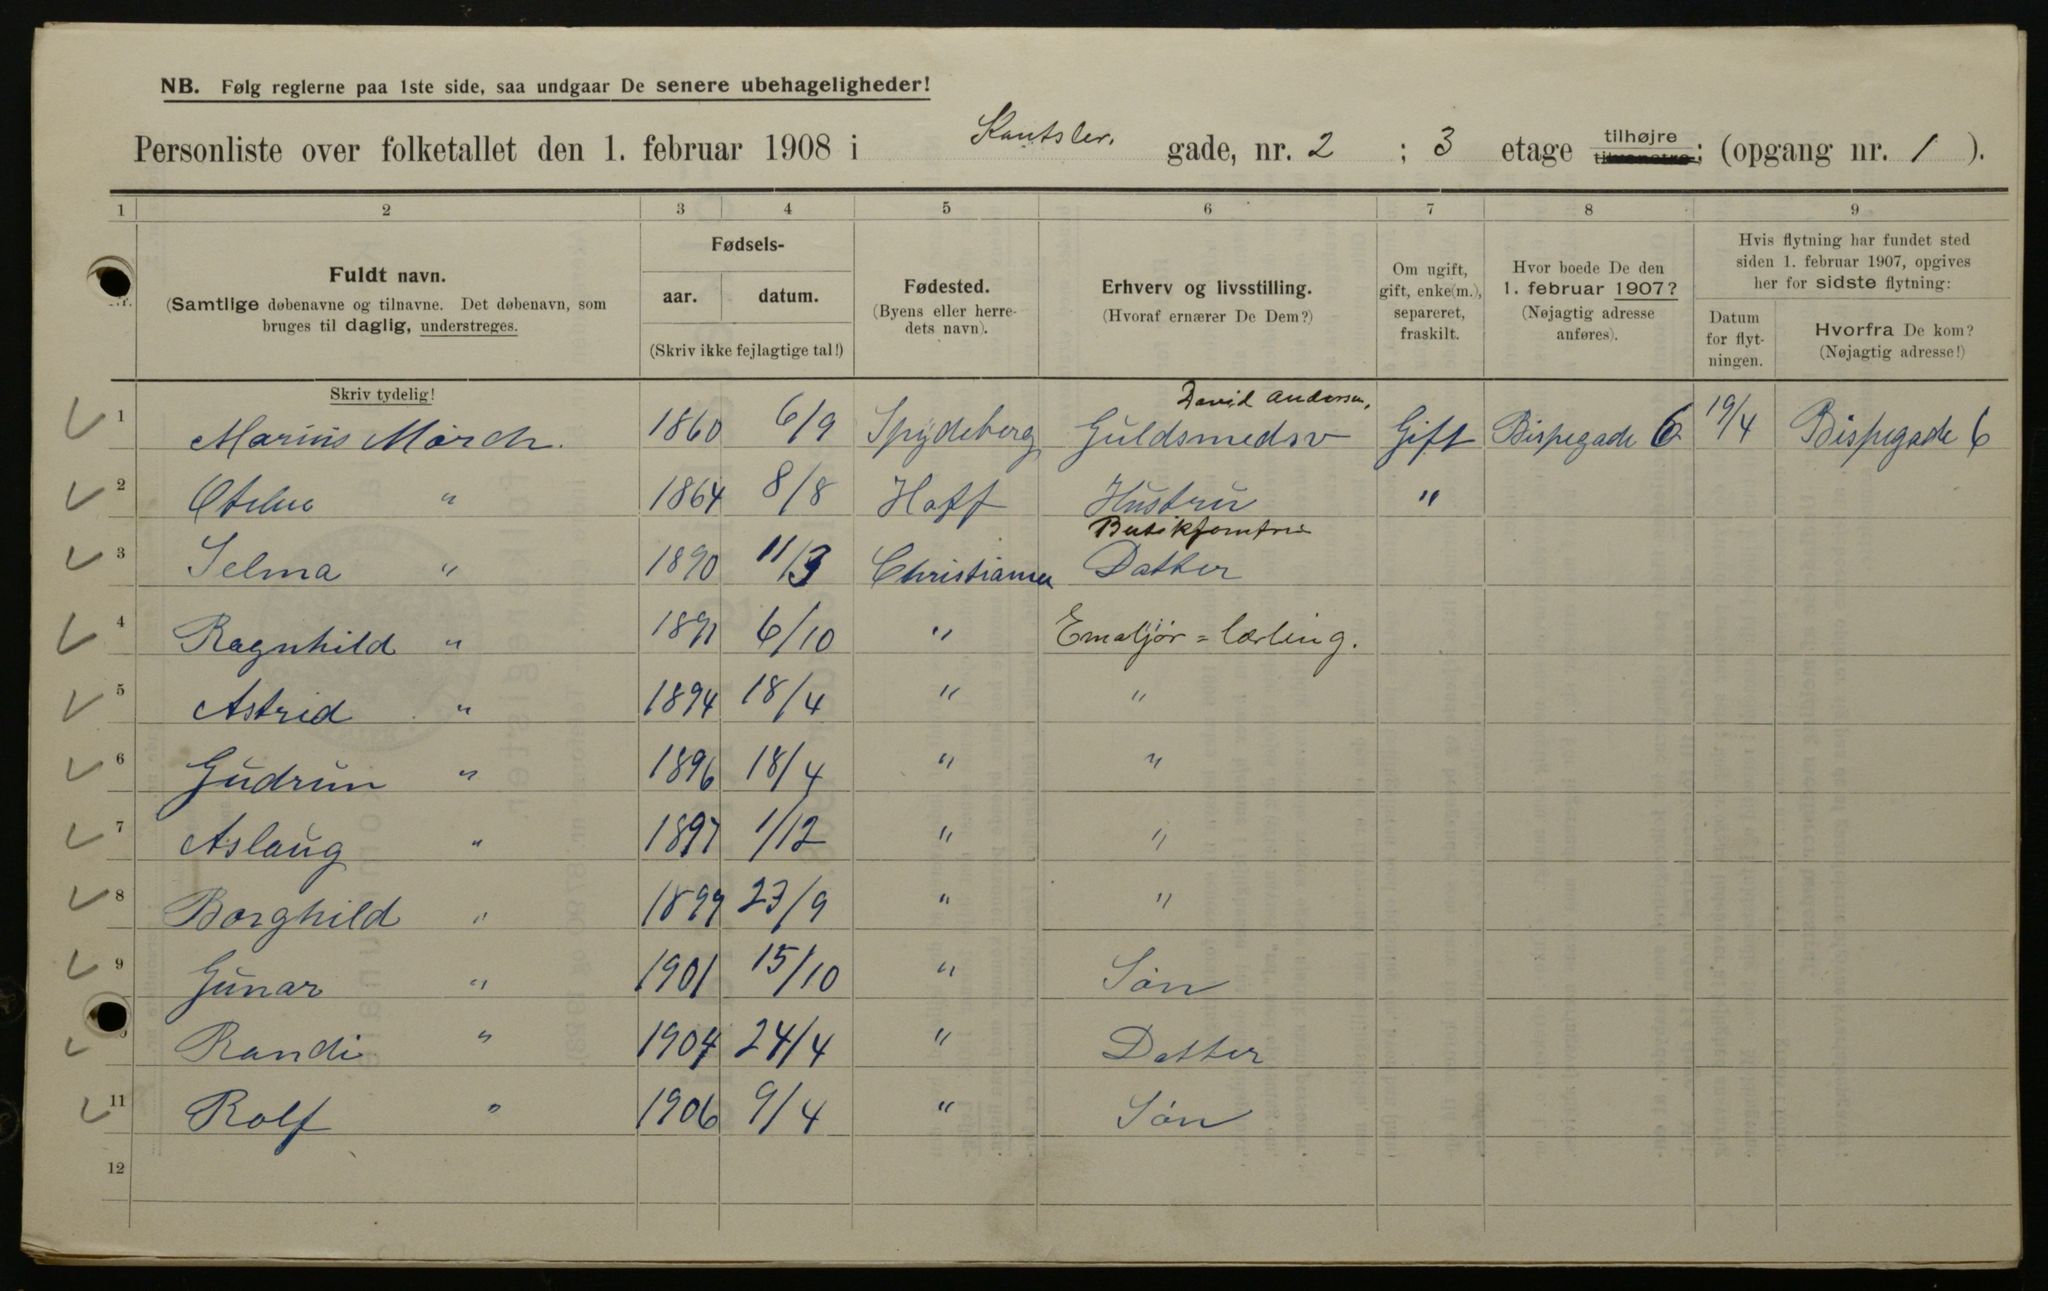 NB. Følg reglerne paa 1ste side, saa undgaar De senere ubehageligheder!
Personliste over folketallet den 1. februar 1908 i Kantsler. gade, nr. 2 ; 3 etage tilhøjre tilvenstre; (opgang nr. 1 ).
1 2 3 4 5 6 7 8 9
Fuldt navn.
(Samtlige døbenavne og tilnavne. Det døbenavn, som
bruges til daglig, understreges.
Fødsels-
aar. datum.
(Skriv ikke fejlagtige tal!)
Fødested.
(Byens eller herre-
dets navn).
Erhverv og livsstilling.
(Hvoraf ernærer De Dem?)
Om ugift,
gift, enke(m.),
separeret,
fraskilt.
Hvor boede De den
1. februar 1907?
(Nøjagtig adresse
anføres).
Hvis flytning har fundet sted
siden 1. februar 1907, opgives
her for sidste flytning:
Datum
for flyt-
ningen.
Hvorfra De kom?
(Nøjagtig adresse!)
Skriv tydelig!
David Andersen,
1 Marius Mörch. 1860 6/9 Spydeberg Guldsmedsv Gift Bispegade 6 19/4 Bispegade 6
2 " 1864 8/8 Hoff Hustru "
3 Selma " 1890 11/3 Christiania Datter
4 Ragnhild " 1891 6/10 " Emaljør = lærling.
5 Astrid " 1894 18/4 " "
6 Gudrun " 1896 18/4 " "
7 Aslaug " 1897 1/12 " "
8 Borghild " 1899 23/9 " "
9 Gunar " 1901 15/10 " Søn
Randi " 1904 24/4 " Datter
11 Rolf " 1906 9/4 " Søn
12